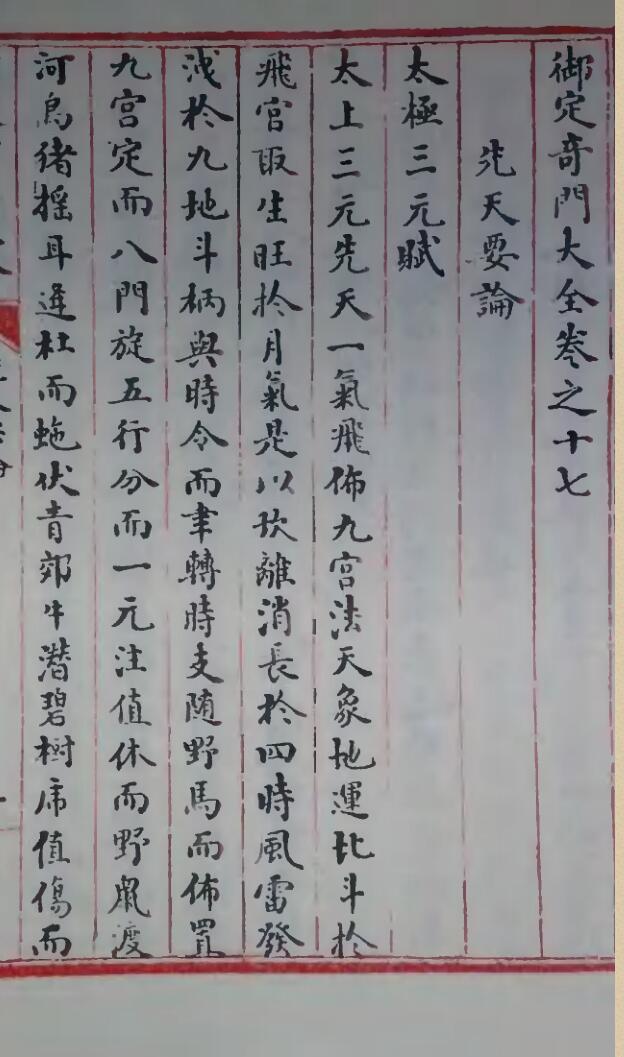 御定奇門大全卷之十七
先天要論
太極三元賦
太上三元先天一氣飛佈九宮法天象地運北斗於
飛宮取生旺於月氣是以坎離消長於四時風雷發
洩於九地斗柄與時令而聿轉時支随野馬而佈置
九宮定而八門旋五行分而一元注值休而野鼠渡
河烏猪摇耳逢杜而虵伏青郊牛潛碧樹虎值傷而